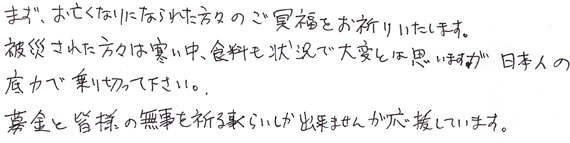 まず、お亡くなりになられた方々のご冥福をお祈りいたします。
被災された方々は寒い中、食料も状況で大変とは思いますが 日本人の
底力で乗り切って下さい。.
募金と皆様の無事を祈る事くらいしか出来ませんが応援しています。